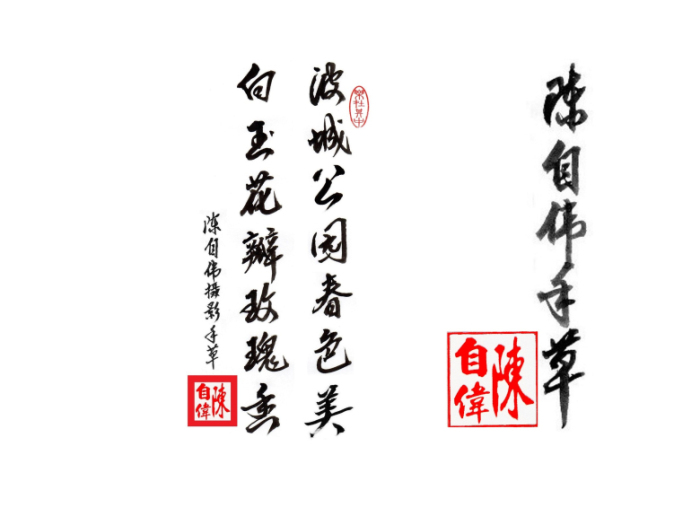 樂在其中
波城公园春色美
白玉花瓣玫瑰香
陈自伟摄影手草
陳自偉
陈自伟手草
陳自偉